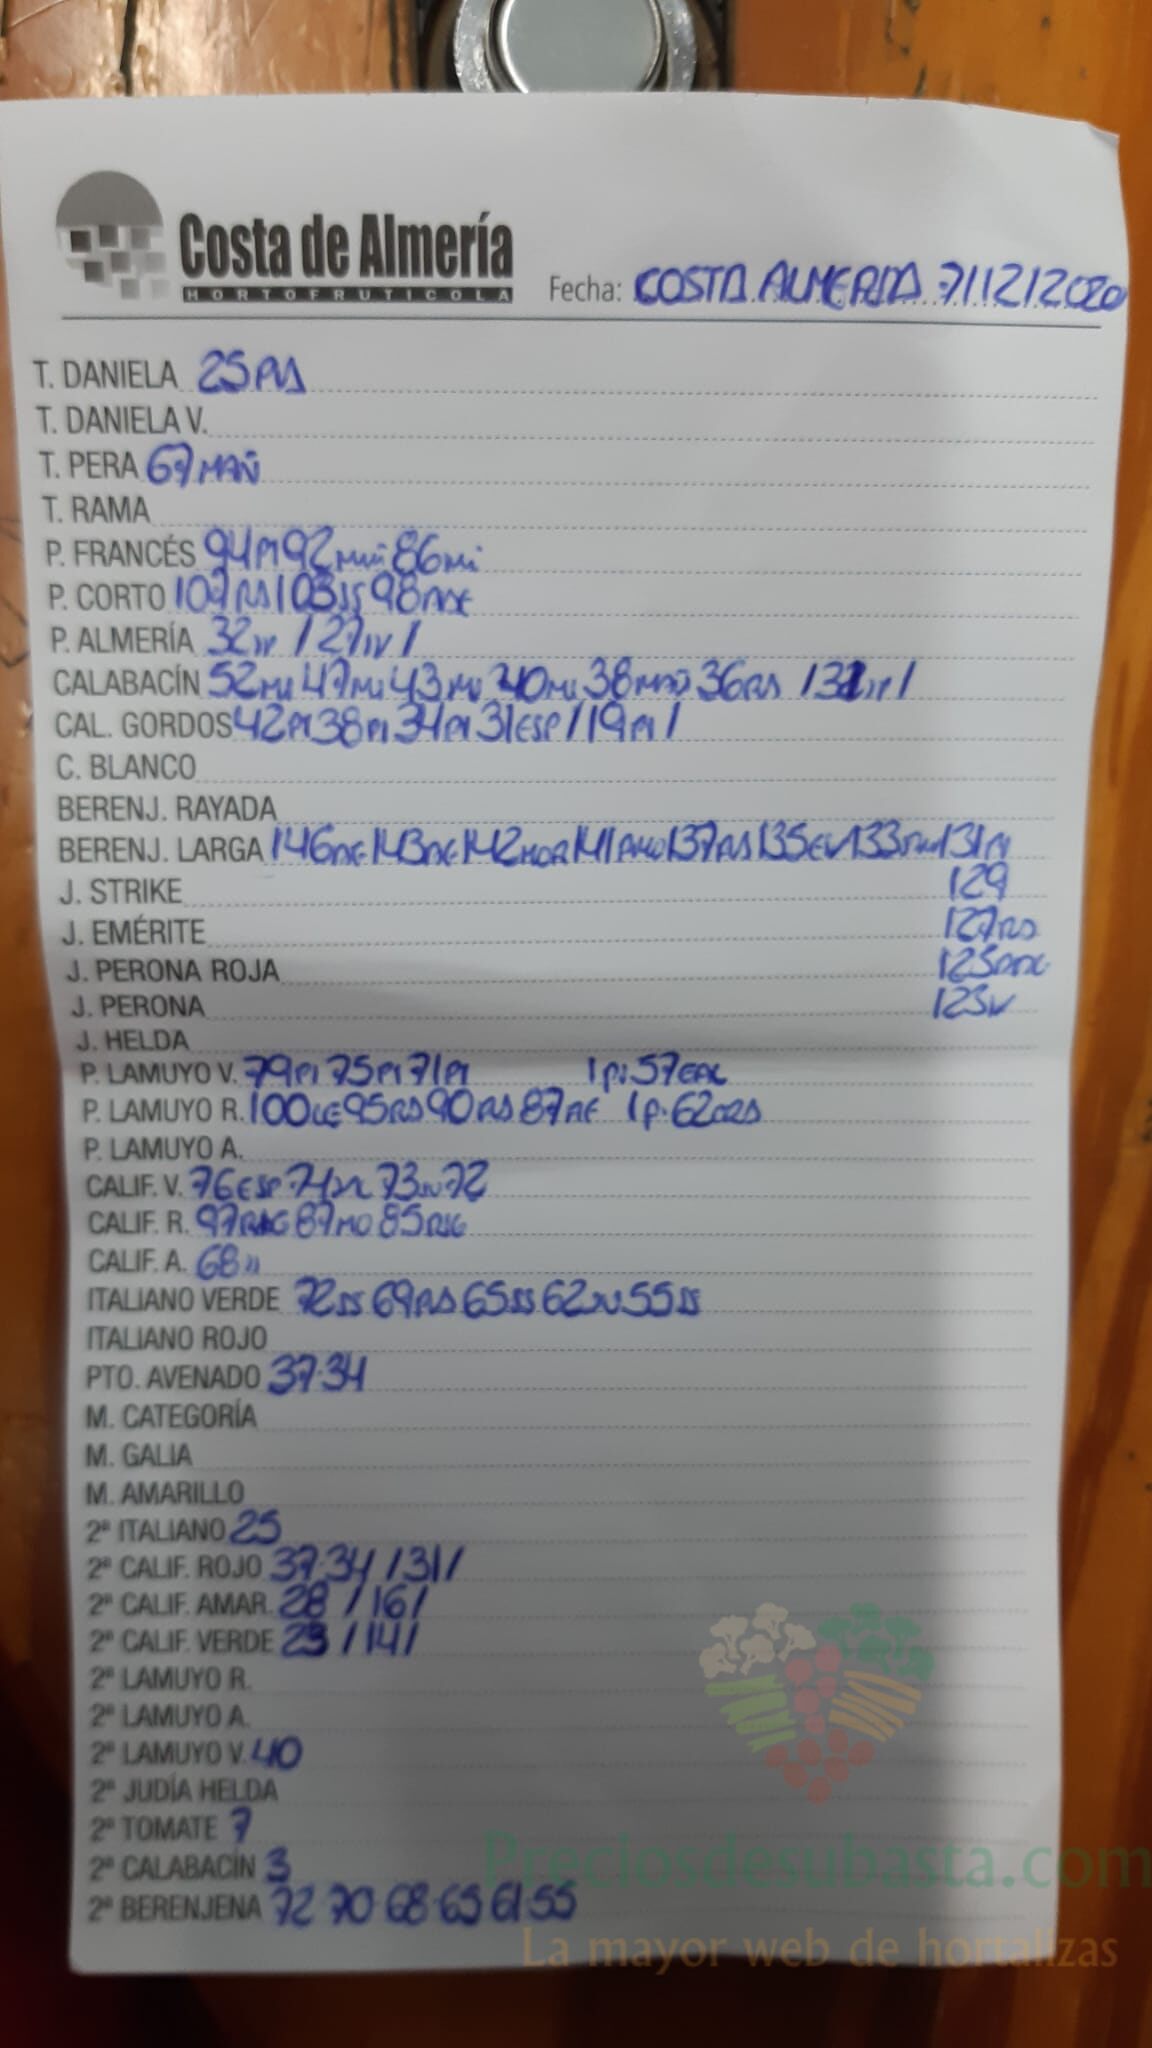 Costa de Almería
HORTOFRUTICOLA
Fecha: COSTA ALMERIA 7/12/2020
T. DANIELA 25 RS
T. DANIELA V.
T. PERA 67 MAÑ
T. RAMA
P. FRANCÉS 94 PI 92 86 Mi
P. CORTO 107 RS 103 SS 98
P. ALMERÍA 32 / 27 /
CALABACÍN 52 47 43 40 38 36 RS / /
CAL. GORDOS 42 PI 38 PI 34 PI 31 ESP / 19 PI /
C. BLANCO
BERENJ. RAYADA
BERENJ. LARGA 146 143 142 MOR 141 137 RS 135 133 131 PI
J. STRIKE 129
J. EMÉRITE 127 RS
J. PERONA ROJA 125
J. PERONA 123
J. HELDA
P. LAMUYO V. 79 PI 75 PI 71 PI 1p: 57
P. LAMUYO R. 100 95 RS 90 RS 87 1p: 62
P. LAMUYO A.
CALIF. V. 76 ESP 74 73 72
CALIF. R. 97 87 MO 85
CALIF. A. 68 "
ITALIANO VERDE 72 SS 69 RS 65 SS 62 55 SS
ITALIANO ROJO
PTO. AVENADO 37·34
M. CATEGORÍA
M. GALIA
M. AMARILLO
2ª ITALIANO 25
2ª CALIF. ROJO 37·34 /31/
2ª CALIF. AMAR. 28 /16/
2ª CALIF. VERDE 23 /14/
2ª LAMUYO R.
2ª LAMUYO A.
2ª LAMUYO V. 40
2ª JUDÍA HELDA
2ª TOMATE 7
2ª CALABACÍN 3
2ª BERENJENA 72 70·68·65 61·55
Preciosdesubasta.com
La mayor web de hortalizas